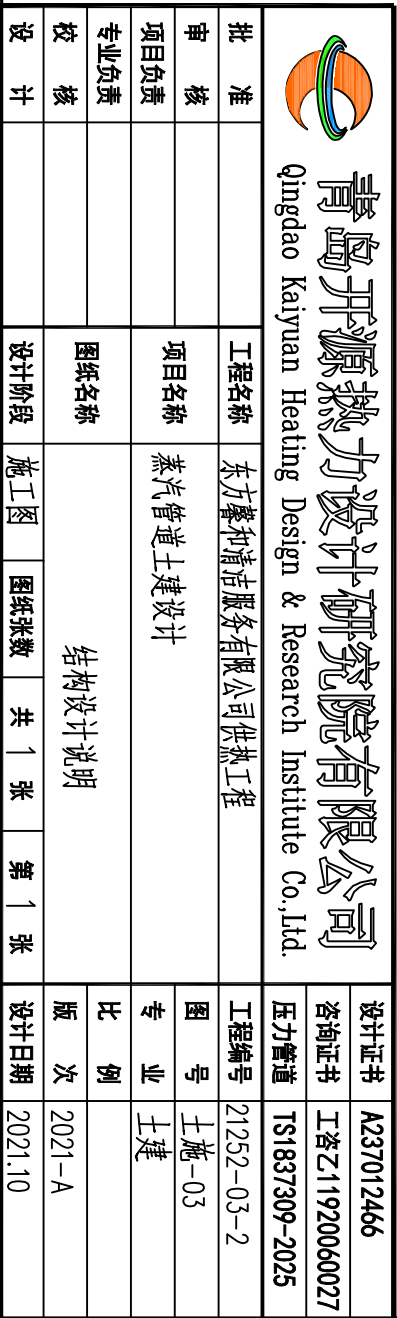 青岛开源热力设计研究院有限公司
Qingdao Kaiyuan Heating Design & Research Institute Co.,Ltd.
设计证书 A237012466
咨询证书 工咨乙11920060027
压力管道 TS1837309-2025
批 准
工程名称 东方馨和清洁服务有限公司供热工程
工程编号 21252-03-2
审 核
图 号 土施-03
项目负责
项目名称 蒸汽管道土建设计
专 业 土建
专业负责
比 例
校 核
图纸名称 结构设计说明
版 次 2021-A
设 计
设计阶段 施工图 图纸张数 共 1 张 第 1 张
设计日期 2021.10